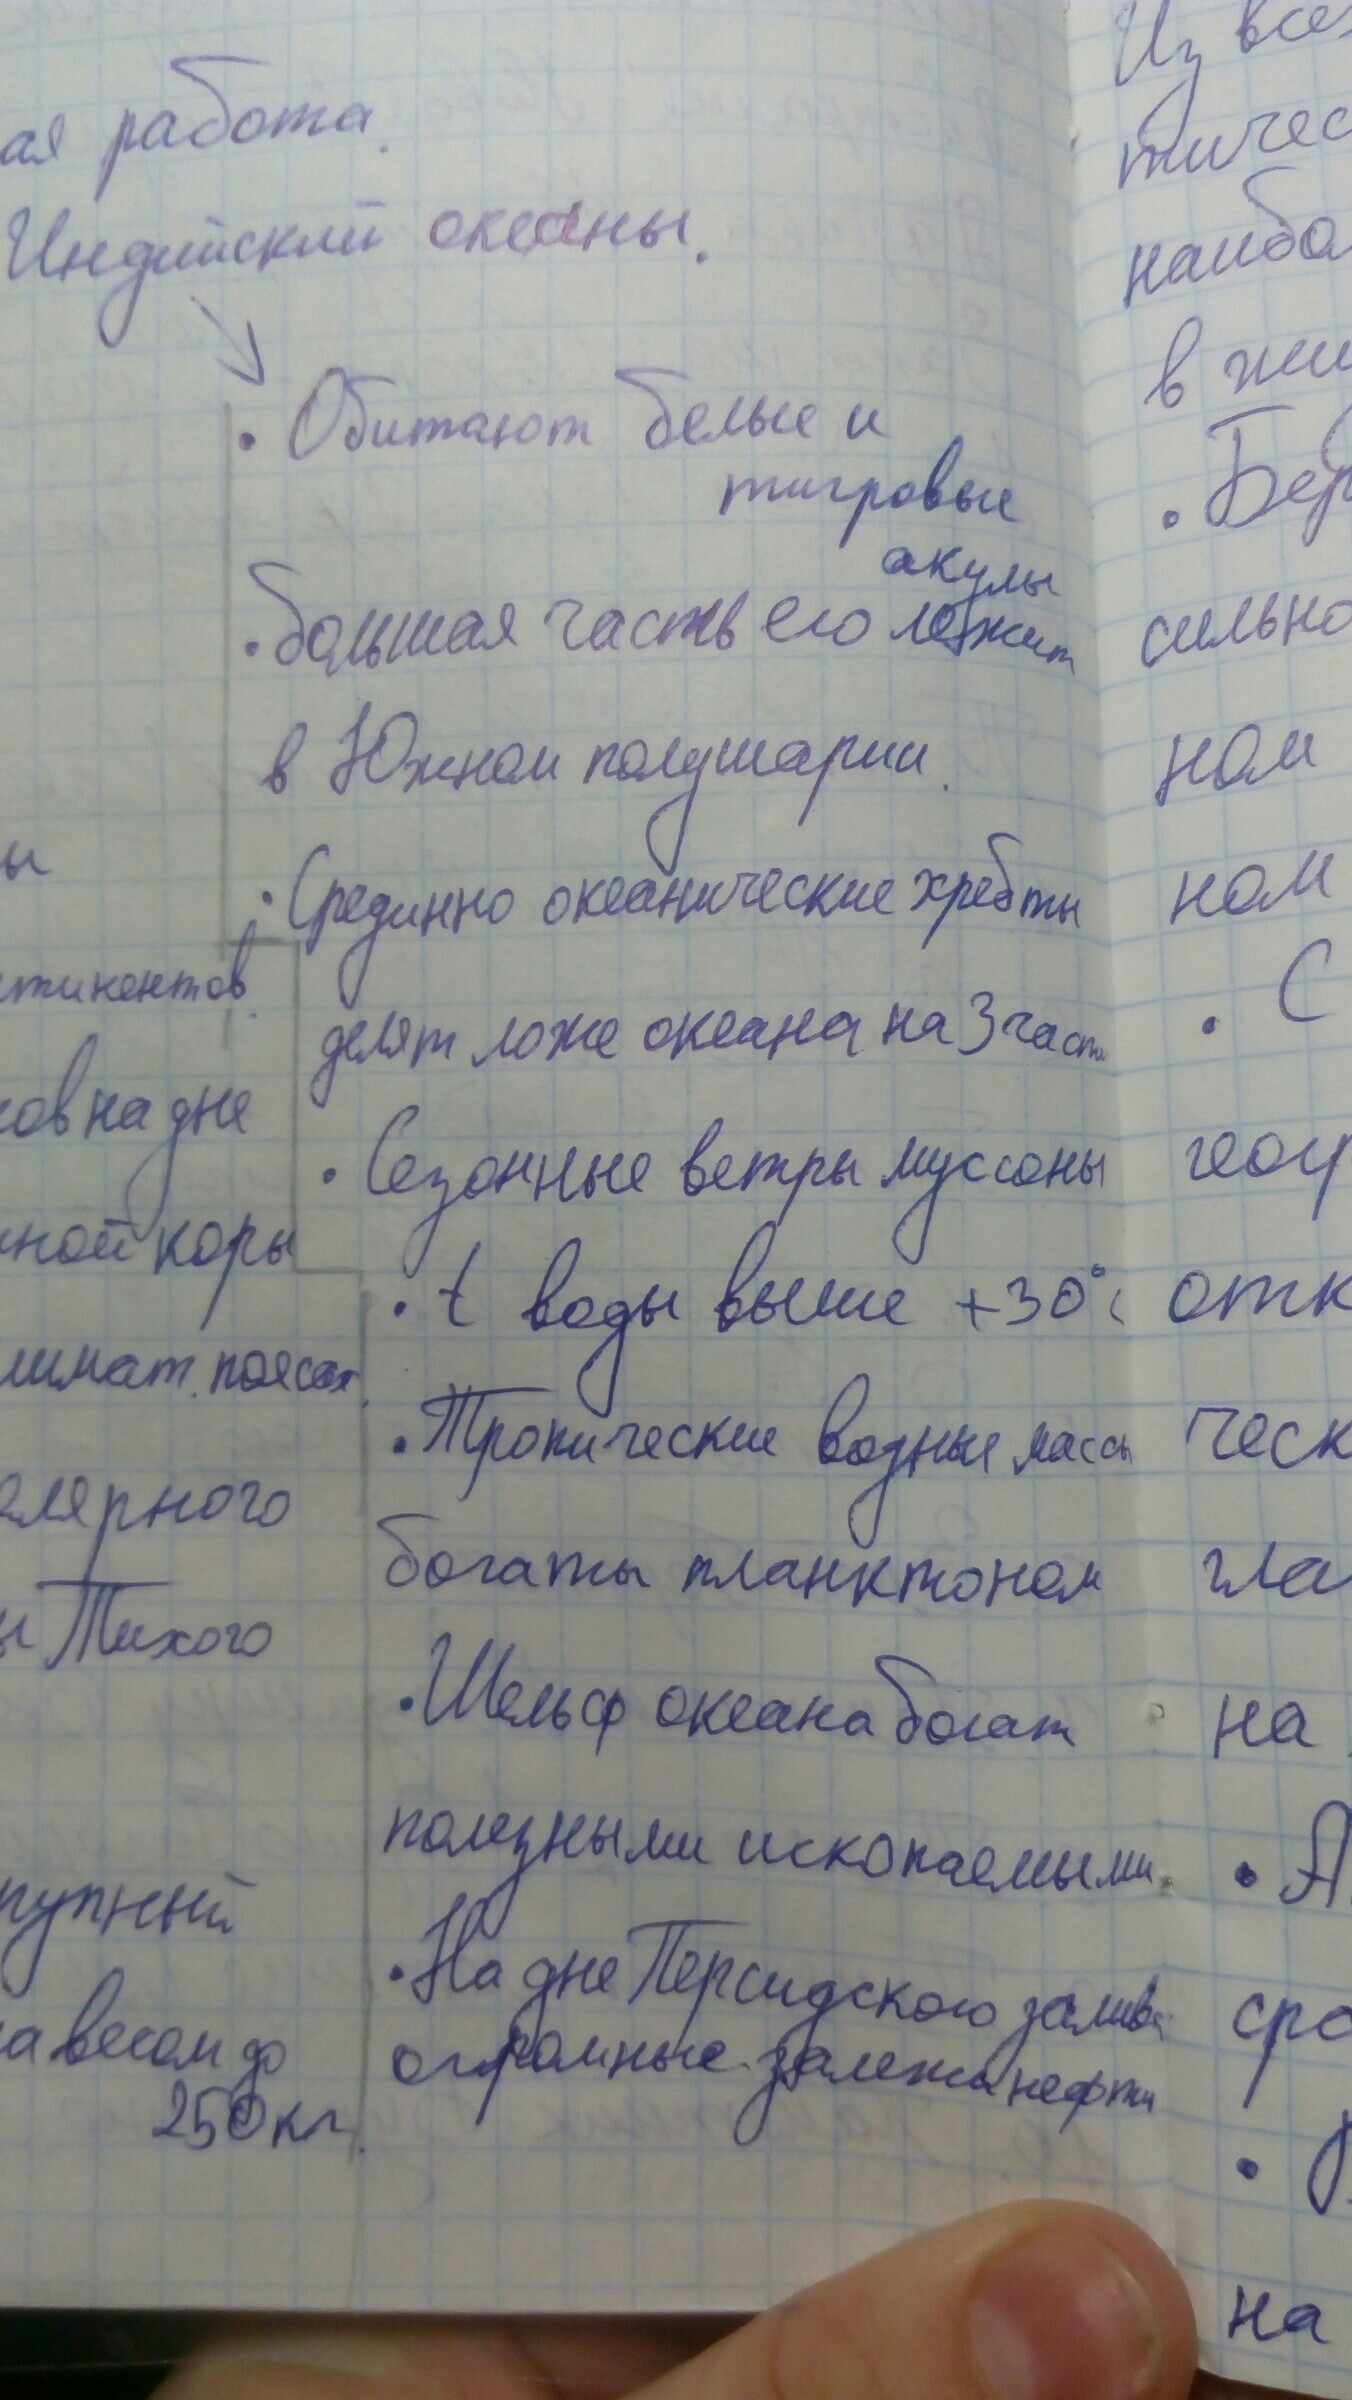 ая работа.
Индийский океаны.
• Обитают белые и
тигровые
акулы
• большая часть его лежит
в Южном полушарии.
• Срединно океанические хребты
делят ложе океана на 3 части
• Сезонные ветры муссоны
• t воды выше +30°с
• Тропические водные массы
богаты планктоном
• Шельф океана богат
полезными ископаемыми.
• На дне Персидского залива
огромные залежи нефти
ы
тинентов.
ков на дне
ной коры
лимат. поясах.
елярного
ы Тихого
пупный
а весом до
250 кг.
Из все
тичес
наибо
в жи
• Бер
сильно
ном
ном
• С
геог
отк
ческ
гла
на
• А
сро
•
на